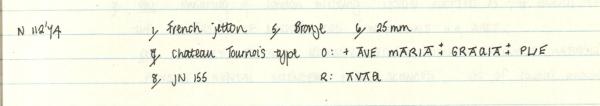 N 112'74 1, French jetton 5, Bronze 6, 25 mm
7, Chateau Tournois type O: + AVE MARIA ‡ GRAQIA ‡ PLIE
8, JN 155 R: AVAQ